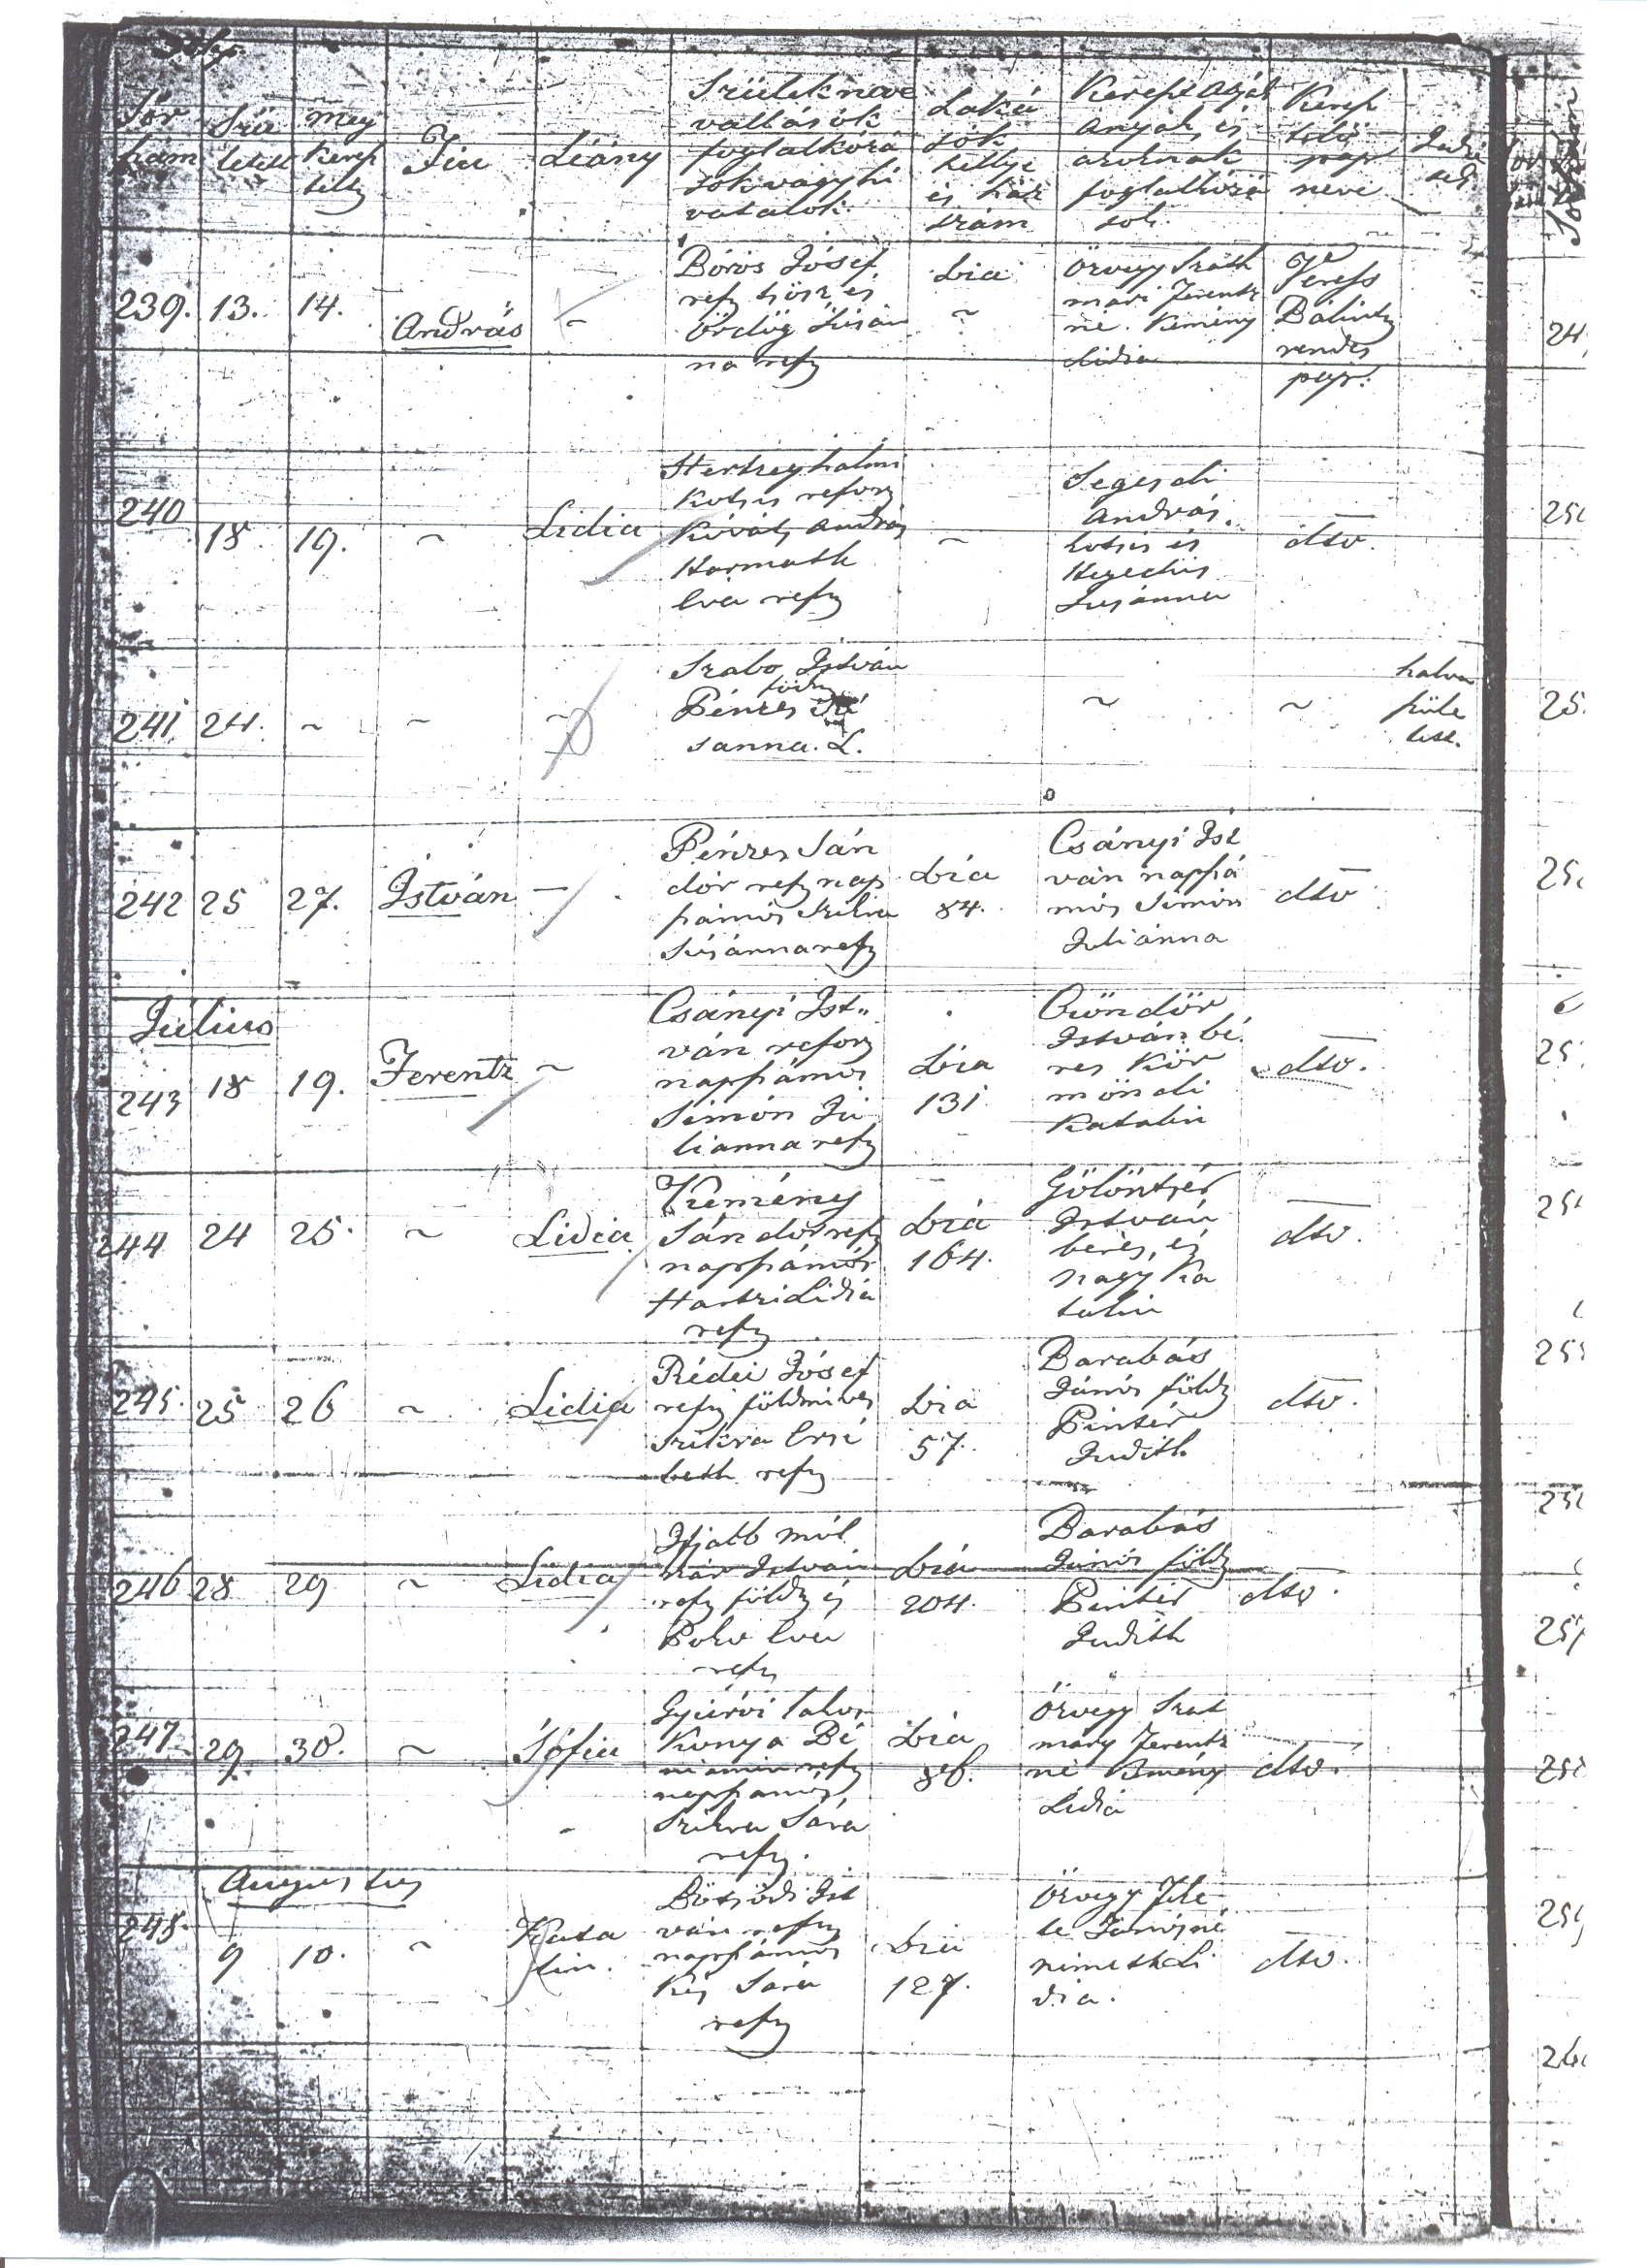 Sor
szám
Szü
letett
meg
keresz
telt
Fiú
Liány
Szülék neve
vallások
foglalkozá
sok vagy hi
vatalok.
Laká
sok
hellye
és ház
szám
Kereszt Atyák
Anyák, és
azoknak
foglalkozá
sok
Keresz
telő
pap
neve
239. 13. 14.
András
~
Bóros Jósef
ref. és
Ördög Susán
na ref.
Bia
~
Özvegy Szath
mári Ferentz
né. Kemény
Lidia
Veress
Bálint
rendes
pap.
240
18. 19.
~
Lidia
Hertzeghalmi
Kotsis reform
Kováts András
Harmath
Eva ref.
~
Segesdi
András.
kotsis és
Hegedüs
Susánna
dto.
241 24. ~ ~ ~
Szabo István
földm
Pénzes Su
sanna. L.
~
~
halva
szüle
tett.
242 25 27. István —
Pénzes Sán
dór ref. nap
számos Szikra
Súsánna ref.
Bia
84.
Csányi Ist
ván napszá
mos Simon
Juliánna
dto
Július
243 18 19. Ferentz ~
Csányi Ist„
ván reform
napszámos
Simón Ju
lianna ref.
Bia
131
Czöndör
István bé.
res Kör
möndi
Katalin
dto.
244 24 25. ~ Lidia
Kemény
Sándor ref.
napszámos
Lidia
ref.
Bia
164.
Gölöntsér
István
béres, és
Nagy Ka
talin
dto.
245. 25 26 ~ Lidia
Rédei Jósef
ref. földmives
Szikra Ersé
beth ref.
Bia
57.
Barabás
János földm
Pintér
Judith
dto.
246 28 29 ~ Lidia
Ifjabb Mol
nár István
ref. földm és
Eva
ref.
Bia
204.
Barabás
János földm
Pintér
Judith
dto.
247 29 30. ~ Sófia
Gyúrói
Kunya Bé
niamin ref.
napszámos,
Szikra Sára
ref.
Bia
Özvegy Szat
máry Ferentz
né Kemény
Lidia
dto.
Augustus
248. 9 10. ~
Kata
lin.
Bötsödi Ist
ván ref.
napszámos
Kis Sára
ref.
Bia
127.
Özvegy
te Jánosné
Németh Li
dia.
dto.